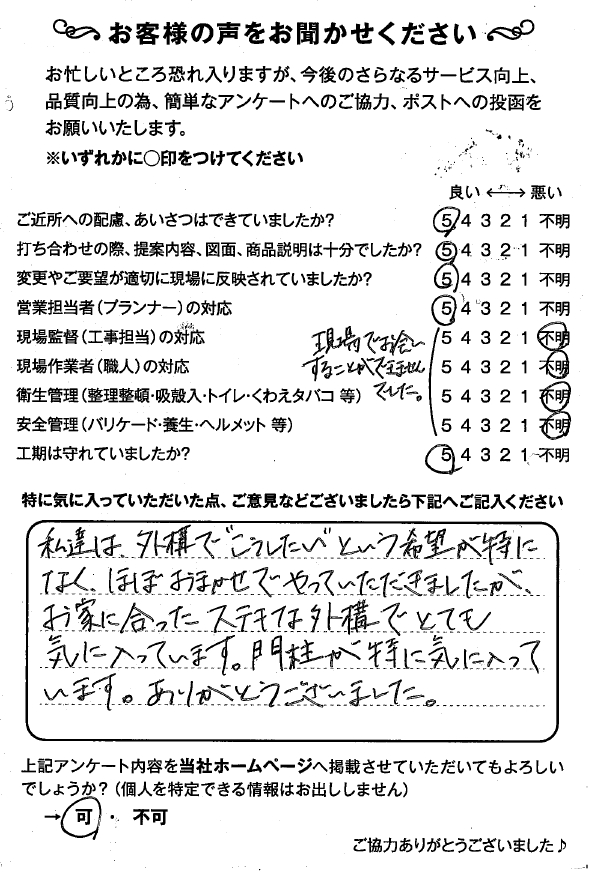 お客様の声をお聞かせください
お忙しいところ恐れ入りますが、今後のさらなるサービス向上、
品質向上の為、簡単なアンケートへのご協力、ポストへの投函を
お願いいたします。
※いずれかに○印をつけてください
良い ←→ 悪い
ご近所への配慮、あいさつはできていましたか? 5 4 3 2 1 不明
打ち合わせの際、提案内容、図面、商品説明は十分でしたか? 5 4 3 2 1 不明
変更やご要望が適切に現場に反映されていましたか? 5 4 3 2 1 不明
営業担当者(プランナー)の対応 5 4 3 2 1 不明
現場監督(工事担当)の対応 5 4 3 2 1 不明
現場作業者(職人)の対応 5 4 3 2 1 不明
衛生管理(整理整頓・吸殻入・トイレ・くわえタバコ 等) 5 4 3 2 1 不明
安全管理(バリケード・養生・ヘルメット 等) 5 4 3 2 1 不明
現場でお会い
することができません
でした。
工期は守れていましたか? 5 4 3 2 1 不明
特に気に入っていただいた点、ご意見などございましたら下記へご記入ください
私達は、外構で"こうしたい"という希望が特に
なく、ほぼおまかせでやっていただきましたが、
お家に合ったステキな外構でとても
気に入っています。門柱が特に気に入って
います。ありがとうございました。
上記アンケート内容を当社ホームページへ掲載させていただいてもよろしい
でしょうか?(個人を特定できる情報はお出ししません)
→ 可 ・ 不可
ご協力ありがとうございました♪